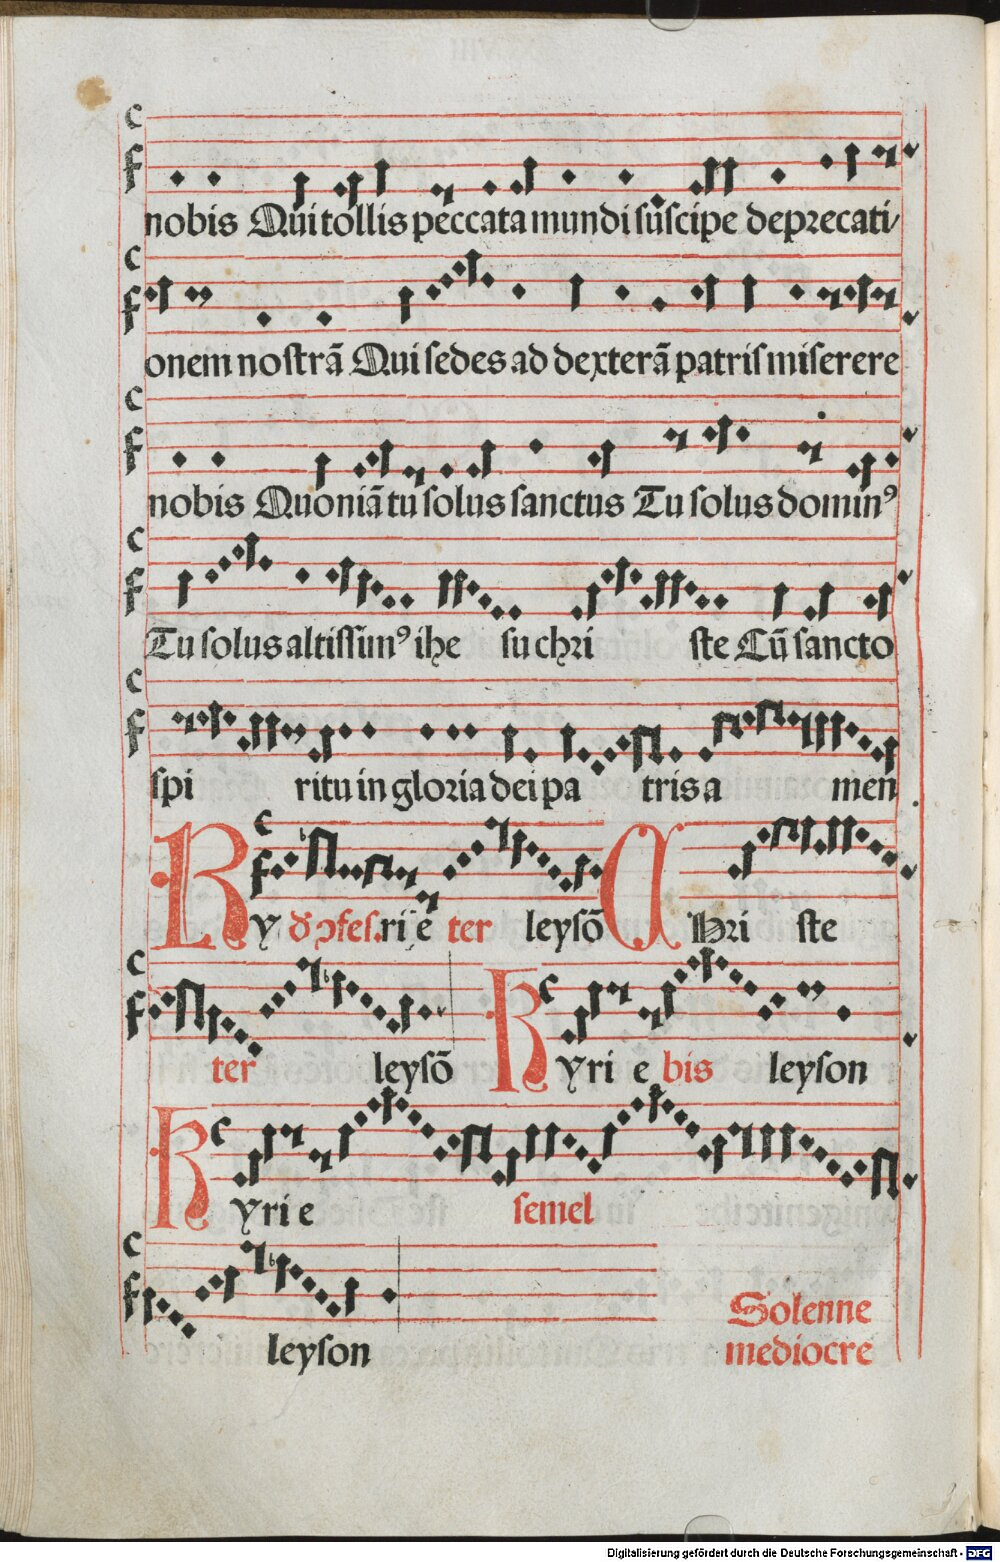 nobis Qui tollis peccata mundi suscipe deprecati
onem nostrã Qui sedes ad dexterã patris miserere
nobis Quoniã tu solus sanctus Tu solus dominꝰ
Tu solus altissimꝰ ihe su chri ste Cũ sancto
spi ritu in gloria dei pa tris a men
Ky ri e ter leysõ Chri ste
ter leysõ Kyri e bis leyson
Kyri e semel
leyson
Solenne
mediocre
Digitalisierung gefördert durch die Deutsche Forschungsgemeinschaft - DFG